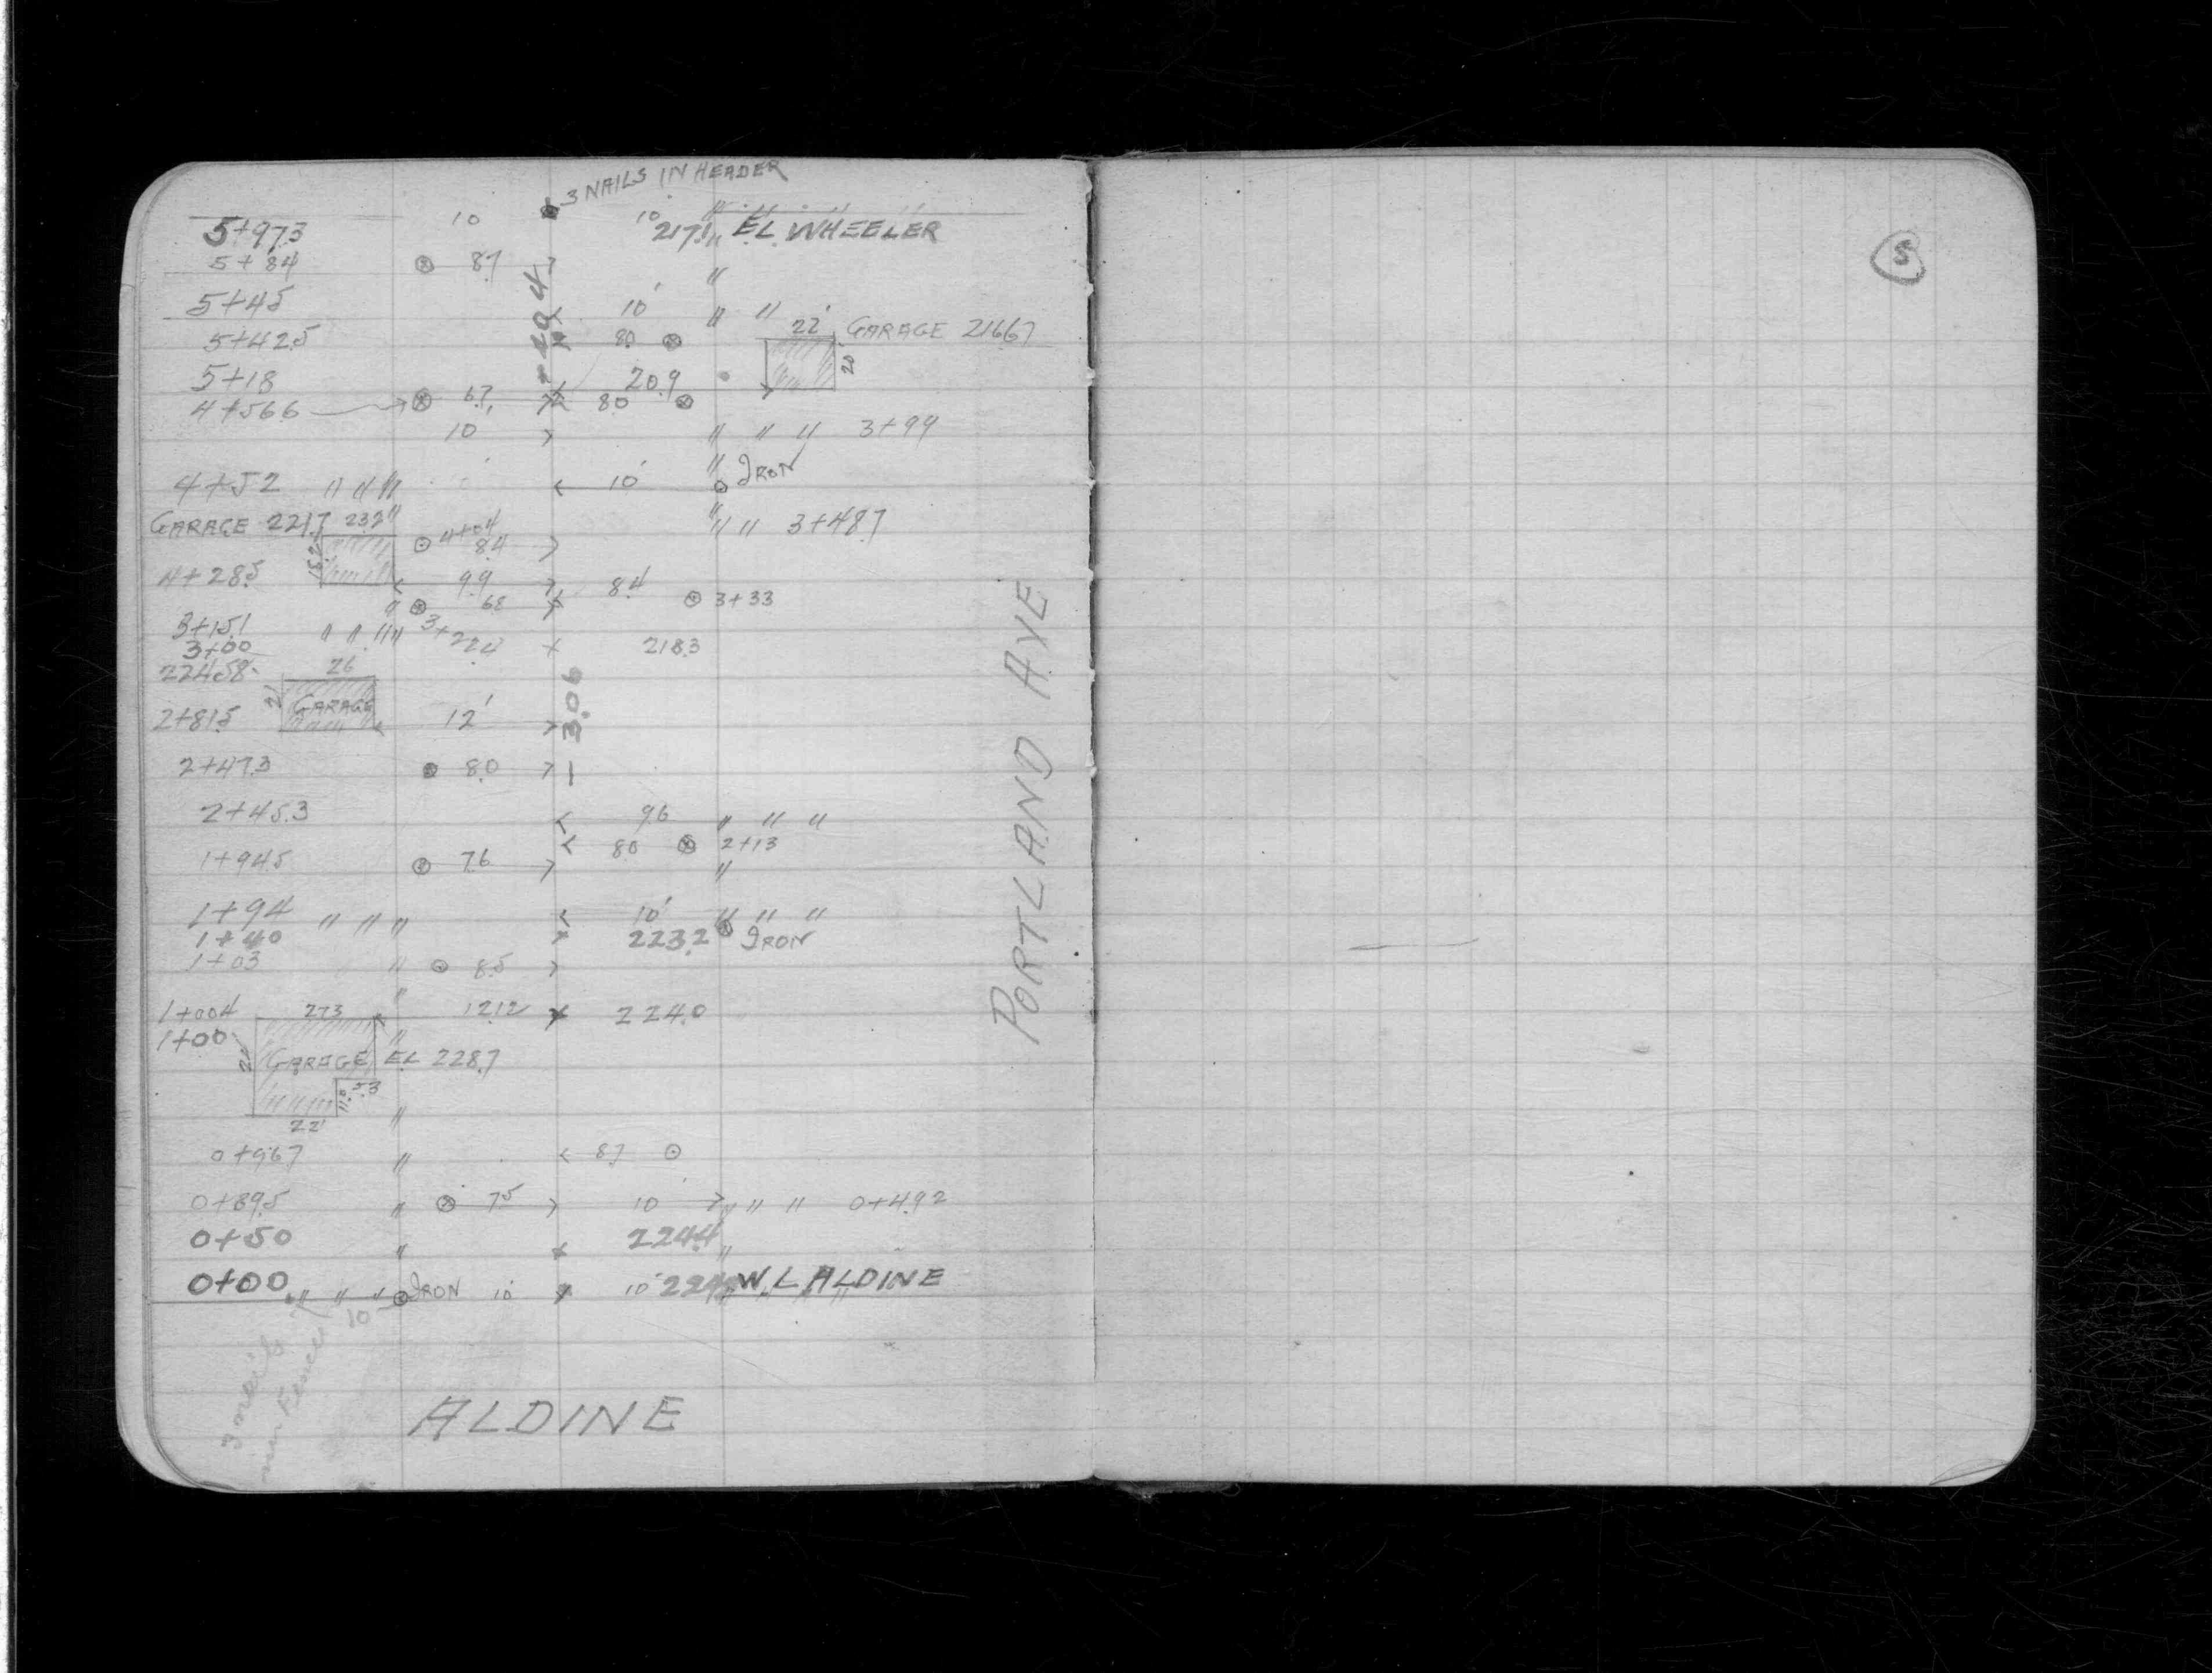 3 NAILS IN HEADER
5+97.3 10 10' 217.1 EL WHEELER
5+84 8.7
5+45 10' " "
22' GARAGE 216.67
5+42.5 8.0
20'
5+18 20.9
4+56.6 6.7 8.0
10 " " " 3+99
" IRON
4+52 " " " 10'
GARAGE 221.7 23.2 " " " 3+48.7
4+04
8.4
18.2
4+28.5 9.9 8.4
6.8 3+33
3+15.1 " " " "
3+22.2
3+00 218.3
224.58 26
21 GARAGE
2+81.5 12'
-3.06
2+47.3 8.0
2+45.3 9.6 " " "
8.0 2+13
1+94.5 7.6 "
1+94 " " " 10' " " "
1+40 223.2 IRON
1+03 " 8.5
1+00.4 27.3 " 12.12 224.0
1+00
GARAGE EL 228.7
11.0 5.3
22' "
0+96.7 " 8.7
0+89.5 " 7.5 10' " " " 0+49.2
0+50 " 224.4 "
0+00 " " " IRON 10' 10' W L ALDINE
10
3 nails
in Fence
ALDINE
PORTLAND AVE
5